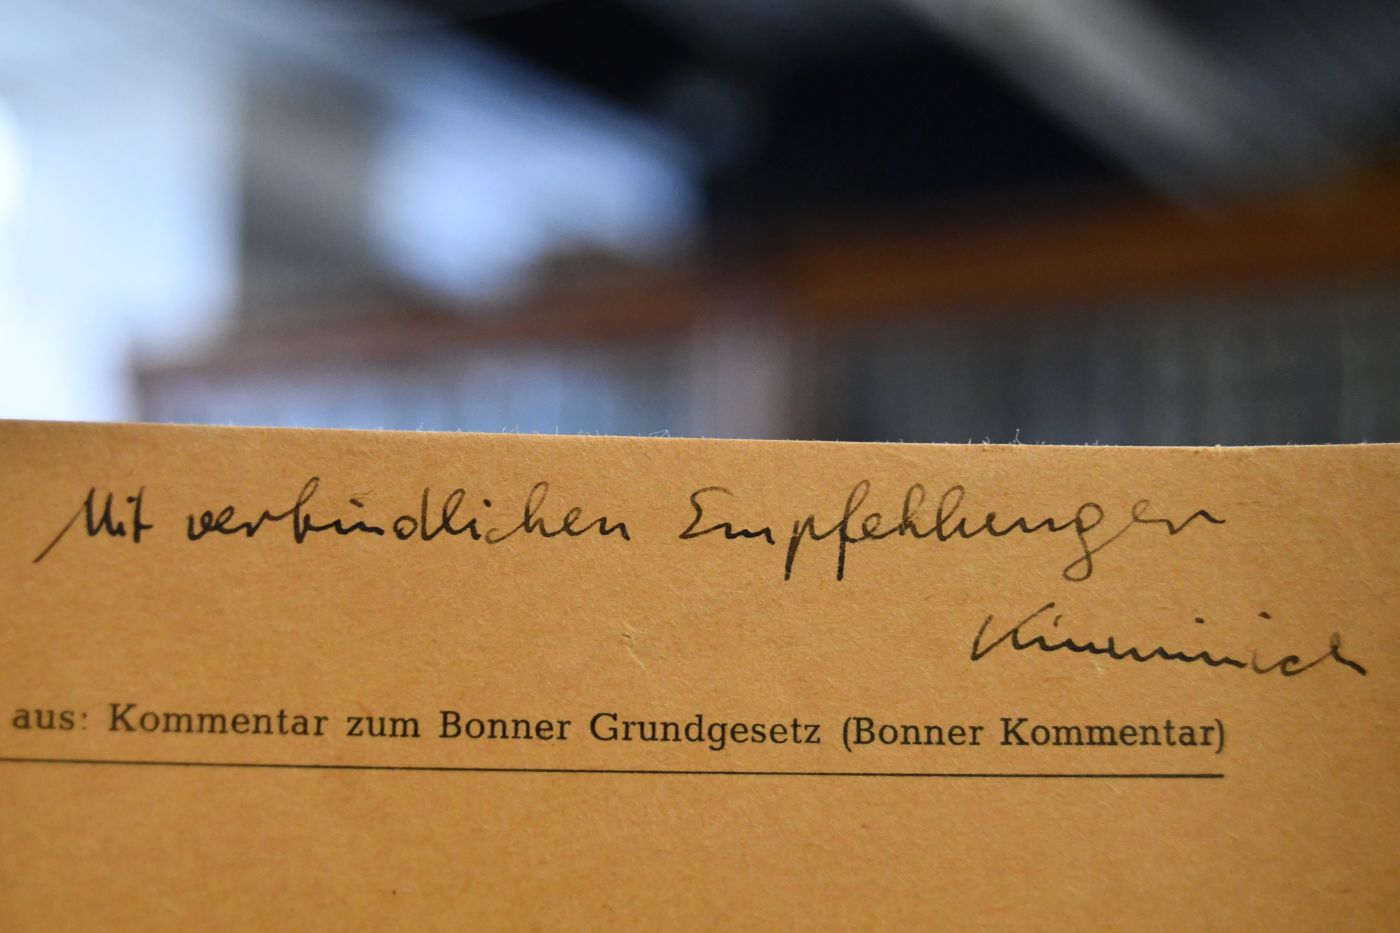 Mit verbindlichen Empfehlungen
Kimminich
aus: Kommentar zum Bonner Grundgesetz (Bonner Kommentar)